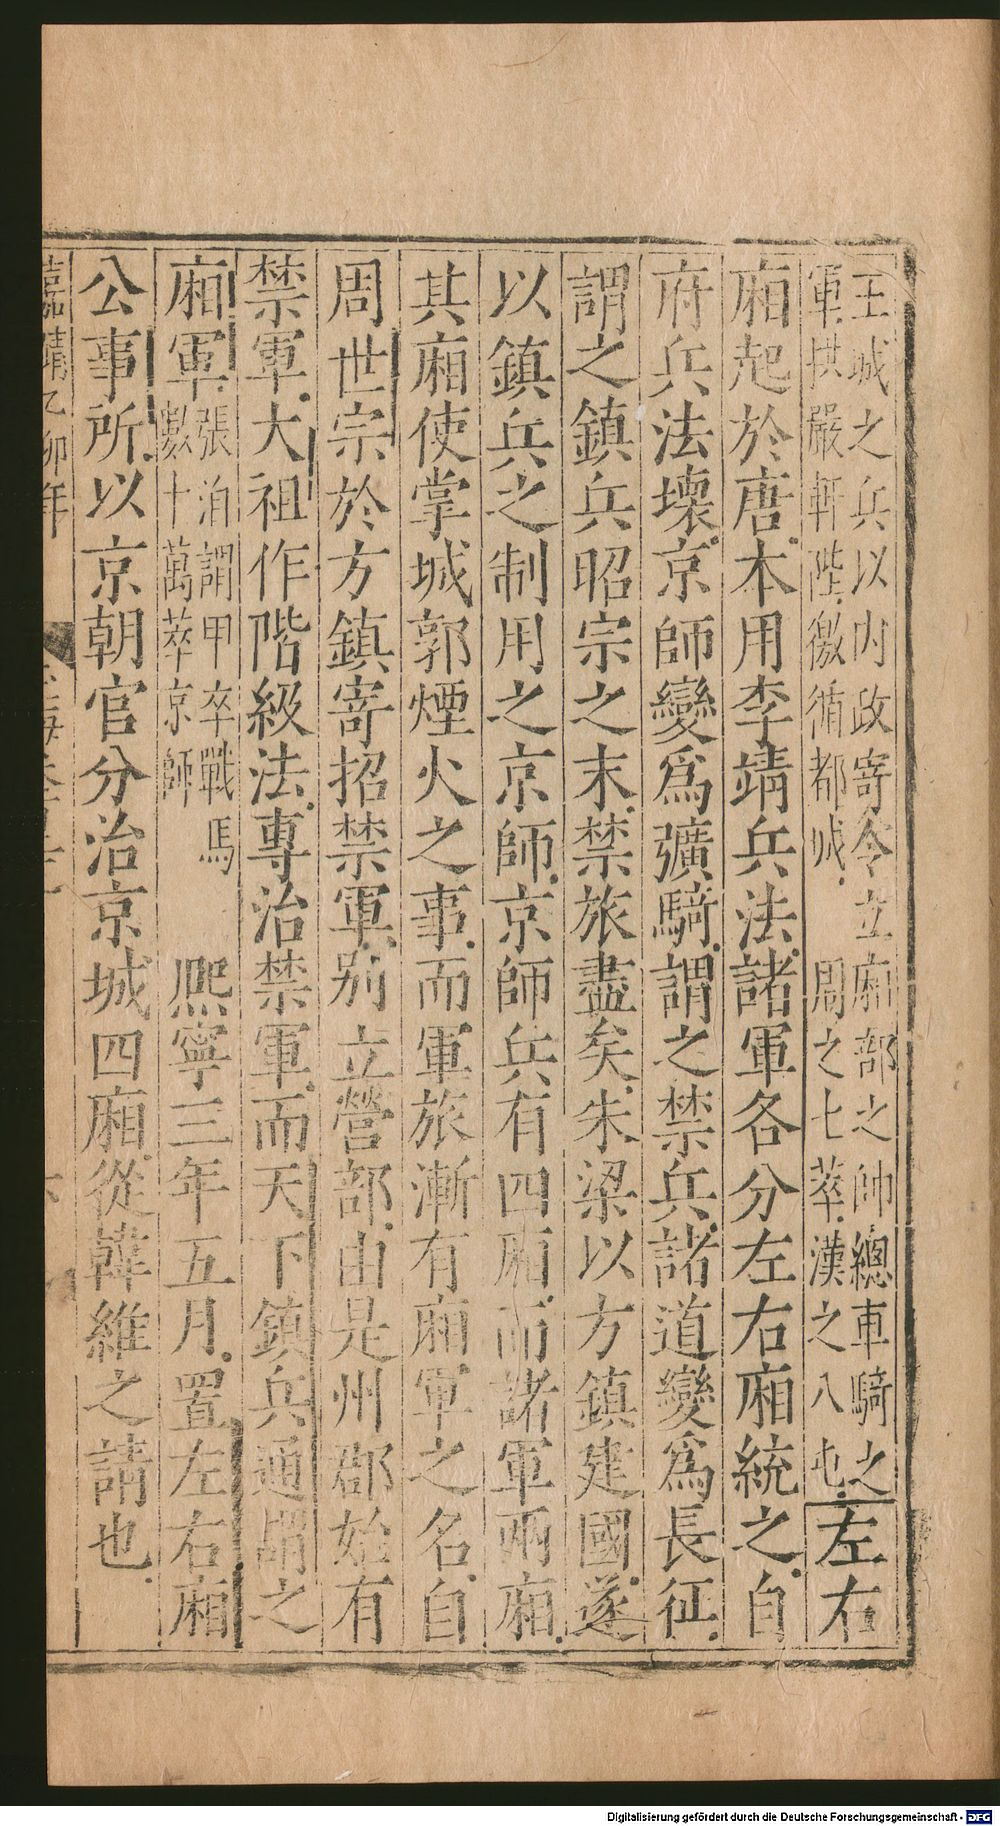 王城之兵以内政寄令立廂部之帥總車騎之
軍拱嚴軒陛徼循都城　周之七萃漢之八屯左右
廂起於唐本用李靖兵法諸軍各分左右廂統之自
府兵法壞京師變爲彍騎謂之禁兵諸道變爲長征
謂之鎮兵昭宗之末禁旅盡矣朱梁以方鎮建國遂
以鎮兵之制用之京師京師兵有四廂而諸軍兩廂
其廂使掌城郭煙火之事而軍旅漸有廂軍之名自
周世宗於方鎮寄招禁軍别立營部由是州郡始有
禁軍大祖作階級法專治禁軍而天下鎮兵通謂之
廂軍
張洎謂甲卒戰馬
數十萬萃京師
熈寧三年五月置左右廂
公事所以京朝官分治京城四廂從韓維之請也
嘉靖乙卯年
Digitalisierung gefördert durch die Deutsche Forschungsgemeinschaft - DFG